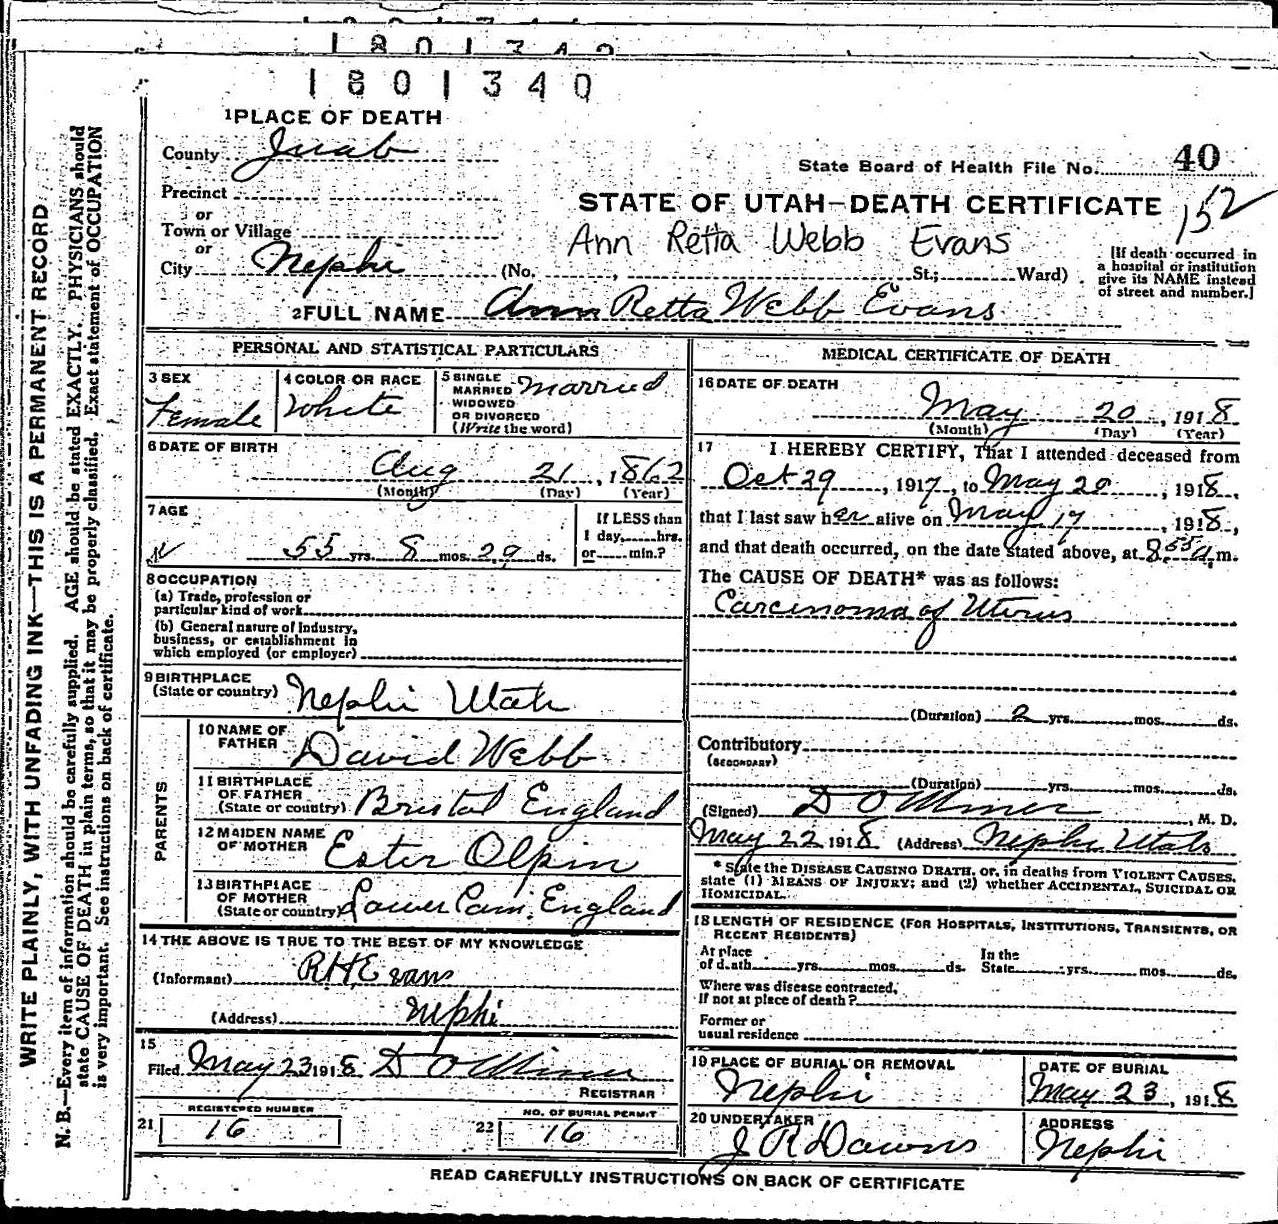 1801342
1801340
1 PLACE OF DEATH
County Juab
State Board of Health File No. 40
Precinct
STATE OF UTAH—DEATH CERTIFICATE 152
or
Town or Village
Ann Retta Webb Evans
or
City Nephi (No. , St.; Ward)
[If death occurred in
a hospital or institution
give its NAME instead
of street and number.]
2 FULL NAME Ann Retta Webb Evans
PERSONAL AND STATISTICAL PARTICULARS
3 SEX
Female
4 COLOR OR RACE
White
5 SINGLE
MARRIED
WIDOWED
OR DIVORCED
(Write the word)
Married
6 DATE OF BIRTH
Aug 21, 1862
(Month) (Day) (Year)
7 AGE
55 yrs. 8 mos. 29 ds.
If LESS than
1 day, hrs.
or min.?
8 OCCUPATION
(a) Trade, profession or
particular kind of work
(b) General nature of Industry,
business, or establishment in
which employed (or employer)
9 BIRTHPLACE
(State or country) Nephi Utah
PARENTS
10 NAME OF
FATHER David Webb
11 BIRTHPLACE
OF FATHER
(State or country) Bristol England
12 MAIDEN NAME
OF MOTHER Ester Olpin
13 BIRTHPLACE
OF MOTHER
(State or country) Lower Cam, England
14 THE ABOVE IS TRUE TO THE BEST OF MY KNOWLEDGE
(Informant) R H Evans
(Address) Nephi
15
Filed May 23 1918 D O Miner
REGISTRAR
REGISTERED NUMBER
21 16
NO. OF BURIAL PERMIT
22 16
MEDICAL CERTIFICATE OF DEATH
16 DATE OF DEATH
May 20, 1918
(Month) (Day) (Year)
17 I HEREBY CERTIFY, That I attended deceased from
Oct 29, 1917, to May 20, 1918,
that I last saw her alive on May 17, 1918,
and that death occurred, on the date stated above, at 8 55 a.m.
The CAUSE OF DEATH* was as follows:
Carcinoma of Uterus
(Duration) 2 yrs. mos. ds.
Contributory
(SECONDARY)
(Duration) yrs. mos. ds.
(Signed) D O Miner, M. D.
May 22 1918 (Address) Nephi Utah
* State the DISEASE CAUSING DEATH, or, in deaths from VIOLENT CAUSES,
state (1) MEANS OF INJURY; and (2) whether ACCIDENTAL, SUICIDAL OR
HOMICIDAL.
18 LENGTH OF RESIDENCE (FOR HOSPITALS, INSTITUTIONS, TRANSIENTS, OR
RECENT RESIDENTS)
At place
of death yrs. mos. ds.
In the
State yrs. mos. ds.
Where was disease contracted,
If not at place of death?
Former or
usual residence
19 PLACE OF BURIAL OR REMOVAL
Nephi
DATE OF BURIAL
May 23, 1918
20 UNDERTAKER
J R Downs
ADDRESS
Nephi
READ CAREFULLY INSTRUCTIONS ON BACK OF CERTIFICATE
WRITE PLAINLY, WITH UNFADING INK—THIS IS A PERMANENT RECORD
N. B.—Every item of information should be carefully supplied. AGE should be stated EXACTLY. PHYSICIANS should
state CAUSE OF DEATH in plain terms, so that it may be properly classified. Exact statement of OCCUPATION
is very important. See instructions on back of certificate.